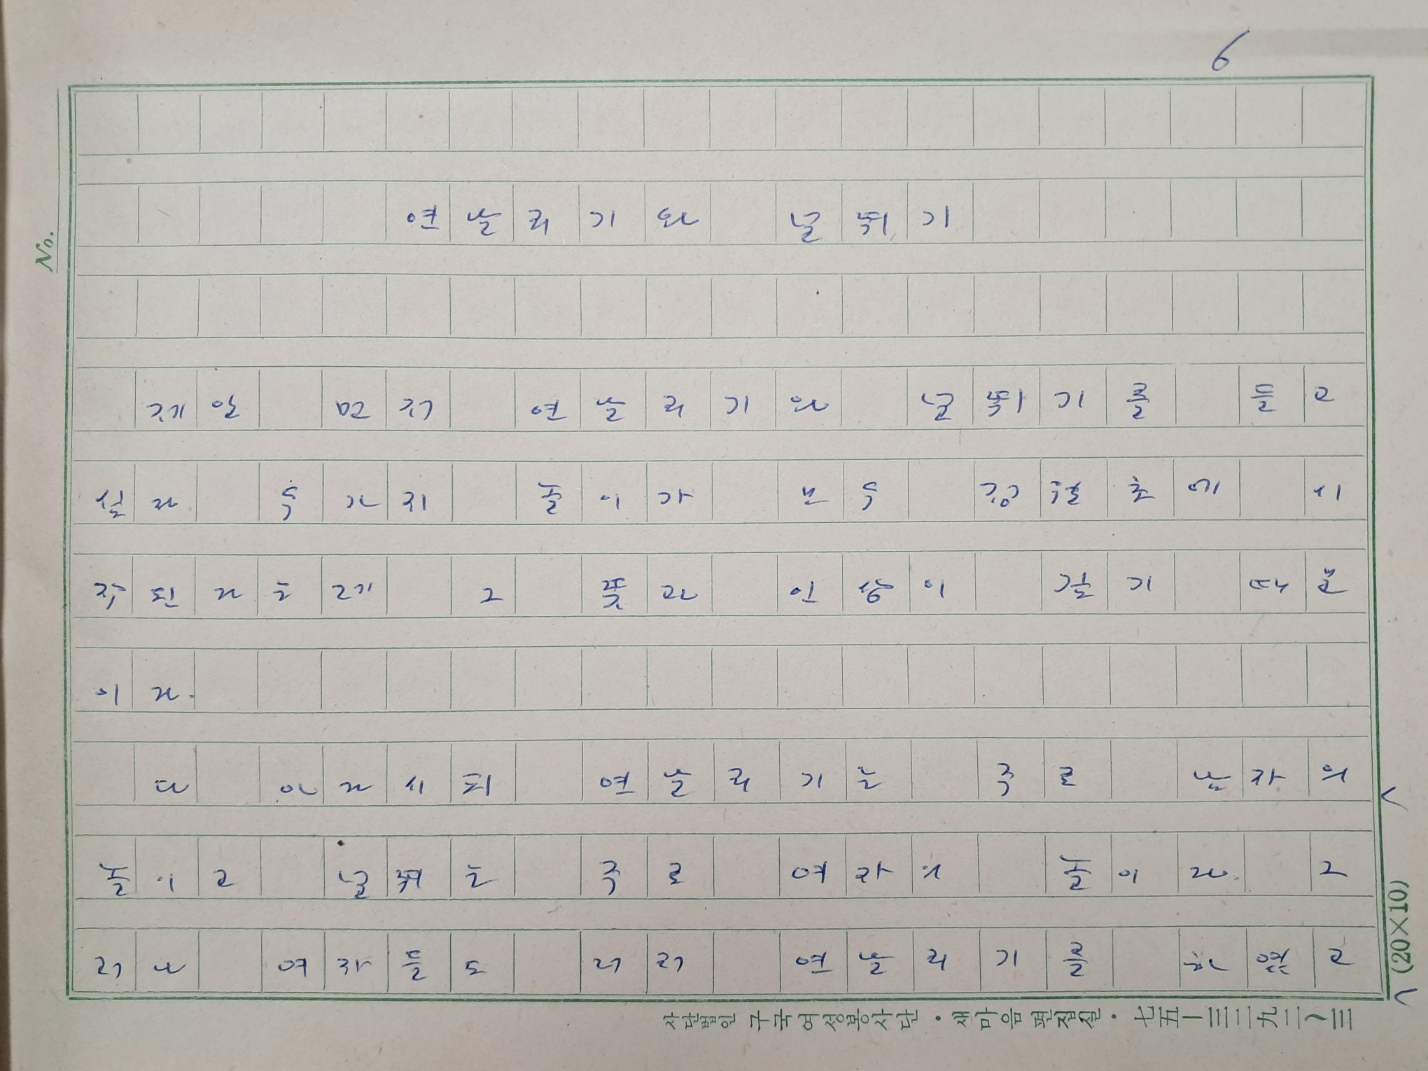 6
No.
연날리기와 널뛰기
제일 먼저 연날리기와 널뛰기를 들고
싶다 두가지 놀이가 모두 정월초에 시
작된다는 그 뜻과 인상이 깊기 때문
이다.
다 아다시피 연날리기는 주로 남자의
놀이고 널뛰는 주로 여자의 놀이다. 그
러나 여자들도 더러 연날리기를 하였고
(20×10)
사단법인 구국여성봉사단·새마음편집실·七五一三三九二~三